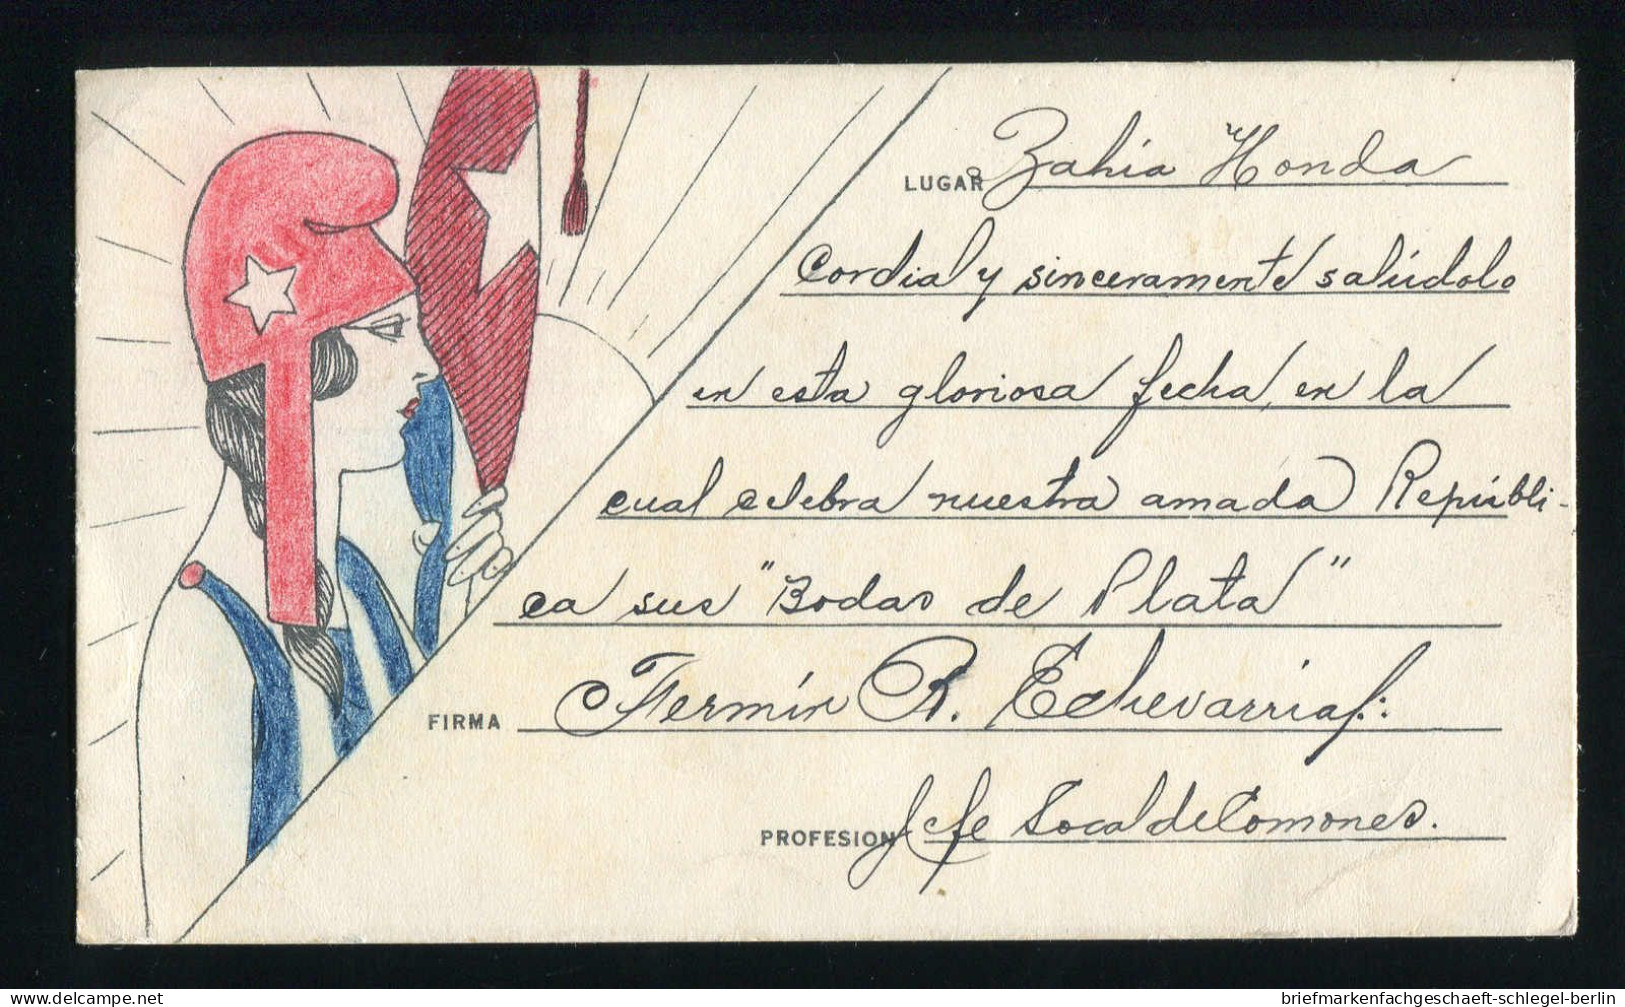 LUGAR Bahia Honda
Cordial y sinceramente salúdolo
en esta gloriosa fecha, en la
cual celebra nuestra amada Repúbli-
ca sus "Bodas de Plata"
FIRMA Fermín R. Echevarria f:.
PROFESION Jefe Local de Comones.
briefmarkenfachgeschaeft-schlegel-berlin